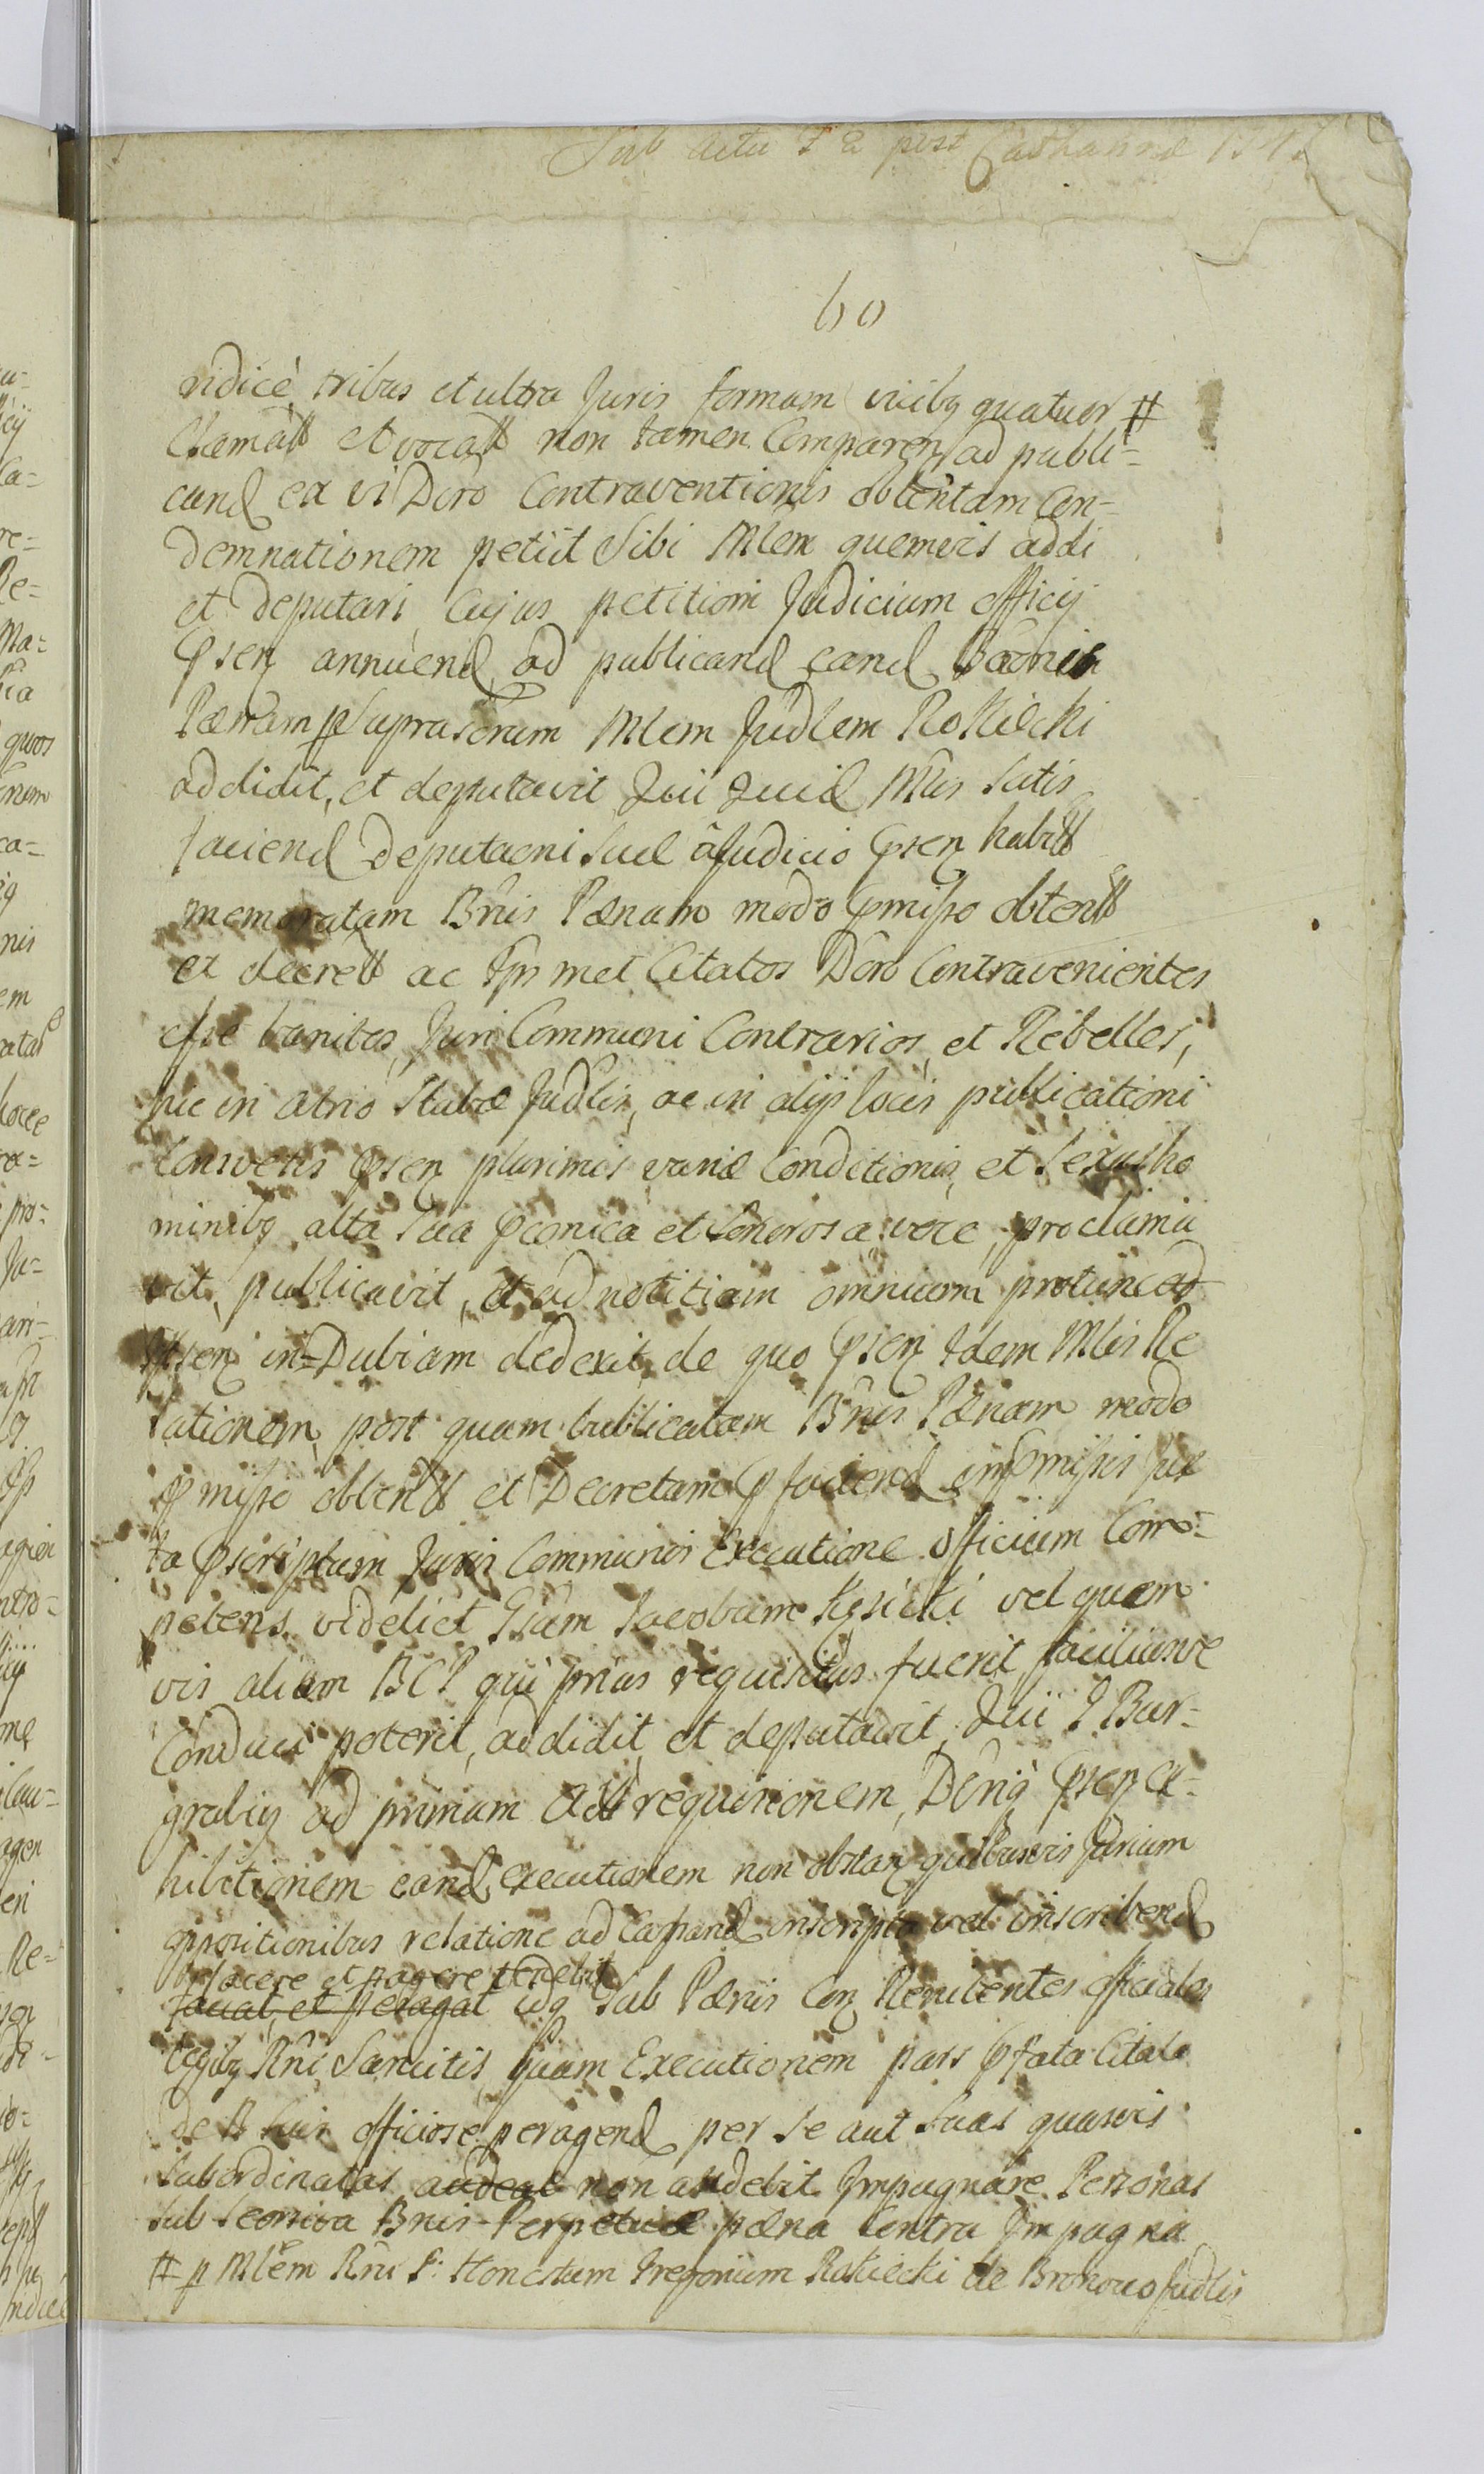 Sub Actu F 2 post 1747
60
ridicè tribus et ultra Juris formam vicibq quatuor #
Clamatt et vocatt non tamen Comparen ad publi=
cand ex vi Dcro Contraventionis obtentam Con=
demnationem petiit Sibi Mlem quemvis addi
et deputari Cujus petitioni Judicium officij
Psen annuend ad publicand eand
Pænam p Suprascrum Mlem Judlem Rokicki
addidit, et deputavit Qui quid Mlis Satis
faciend Deputaoni Suæ a Judicio Psen habitt
memoratam Bnis Pænam modo Pmisso obtentt
et decrett ac Ipsmet Citatos Dcro Contravenientes
esse banitos, Juri Communi Contrarios, et Rebelles,
hic in atrio Stubæ Judlis, ac in alijs locis publicationi
Consvetis Psen plurimis variæ Conditionis, et Sexus ho
minibq alta Sua Pconica et Sonorosa voce, proclama
vit, publicavit, et ad notitiam omnium protunc ad
Psen in=Dubiam dedexit, de quo Psen Idem Mlis Re
lationem, post quam Publicatam Bnis Pænam modo
Pmisso obtentt et Decretam P faciend in Pmissis jux
ta Pscriptum Juris Communis Executione officium Com=
petens videlict Gsum Jacobum vel quem
vis alium BCP qui prius requisitus fuerit faciliusve
Conduci poterit, addidit et deputavit, Qui G Bur=
grabiq ad primam Att requisitionem, Dcriq Psen ex=
hibitionem eand executionem non obstan quibusvis Partium
oppositionibus relatione ad inscripta vel inscribend
facere et pagere tenebit
faciat, et peragat idq Sub Pænis Con Renitentes officiales
legibq Rni Sancitis Quam Executionem pars Pfata Citata
officiose peragend per se aut Suas quasvis
Subordinatas audeat non audebit Impugnare Personas
Sub Bnis Perpetuæ pæna Contra Impugna
# p Mlem Rni G: Honestum Gregorium Rokicki de Bronowo Judlis